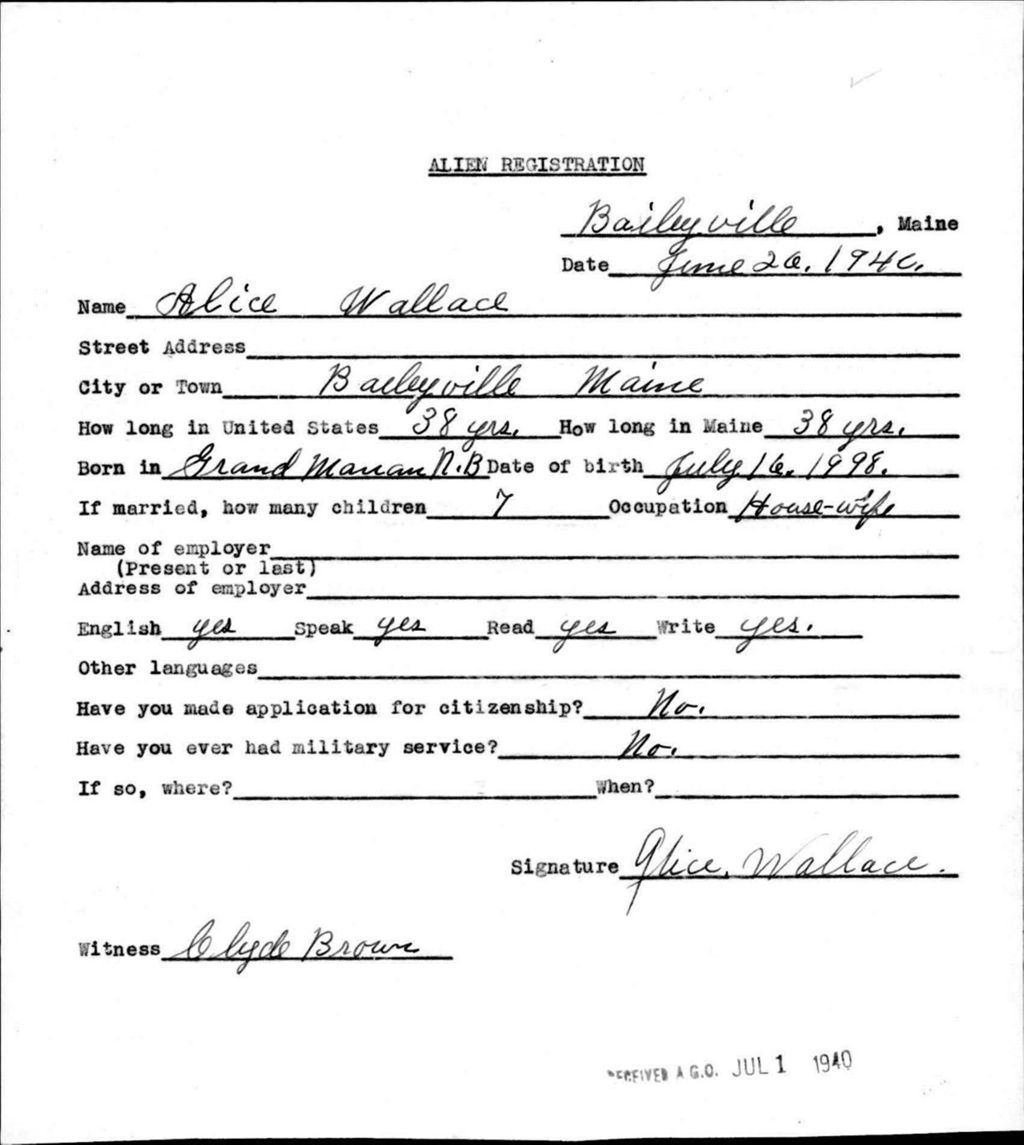 ALIEN REGISTRATION
Baileyville, Maine
Date June 26. 1940.
Name Alice Wallace
Street Address
City or Town Baileyville Maine
How long in United States 38 yrs. How long in Maine 38 yrs.
Born in Grand Manan N.B Date of birth July 16. 1998.
If married, how many children 7 Occupation House-wife
Name of employer
(Present or last)
Address of employer
English yes Speak yes Read yes Write yes.
Other languages
Have you made application for citizenship? No.
Have you ever had military service? No.
If so, where? When?
Signature Alice. Wallace.
Witness Clyde Brown
RECEIVED A.G.O. JUL 1 1940